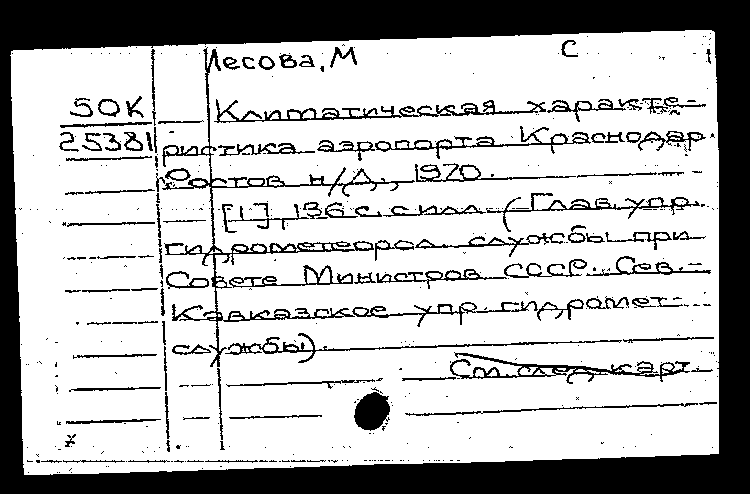 Лесова, М
С
SOK
25381
Климатическая характе-
ристика аэропорта Краснодар.
Ростов н/Д., 1970.
[1], 136 с. с илл. (Глав. упр.
гидрометеорол. службы при
Совете Министров СССР. Сев.-
Кавказское упр. гидромет-
службы).
См. след. карт.